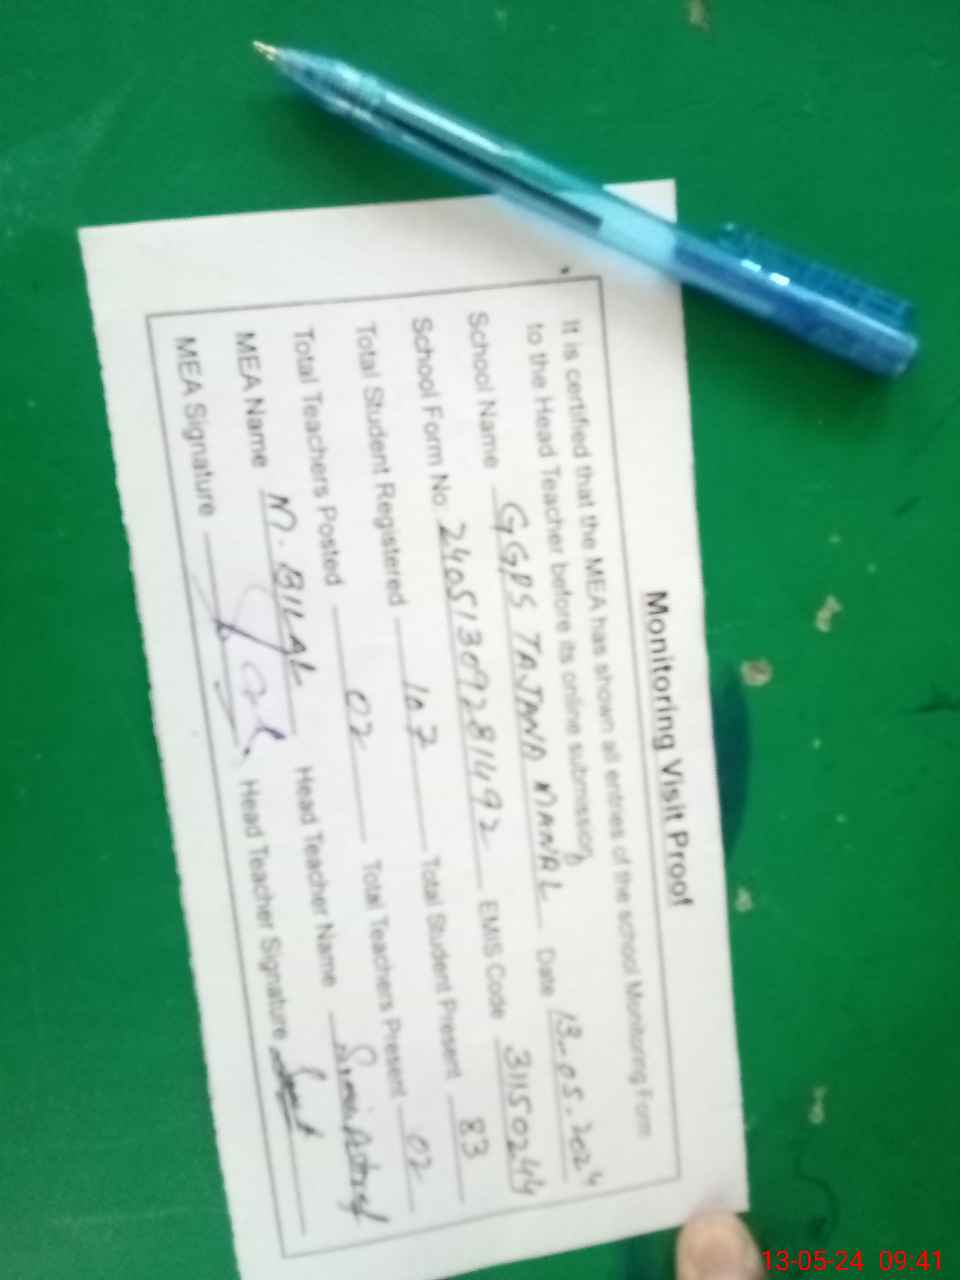 Monitoring Visit Proof
It is certified that the MEA has shown all entries of the school Monitoring Form
to the Head Teacher before its online submission
School Name GGPS TAJANA MANAL Date 13-05-2024
School Form No. 24051309281492 EMIS Code 31150244
Total Student Registered 107 Total Student Present 83
Total Teachers Posted 02 Total Teachers Present 02
MEA Name M. BILAL Head Teacher Name
MEA Signature Head Teacher Signature
13-05-24 09:41